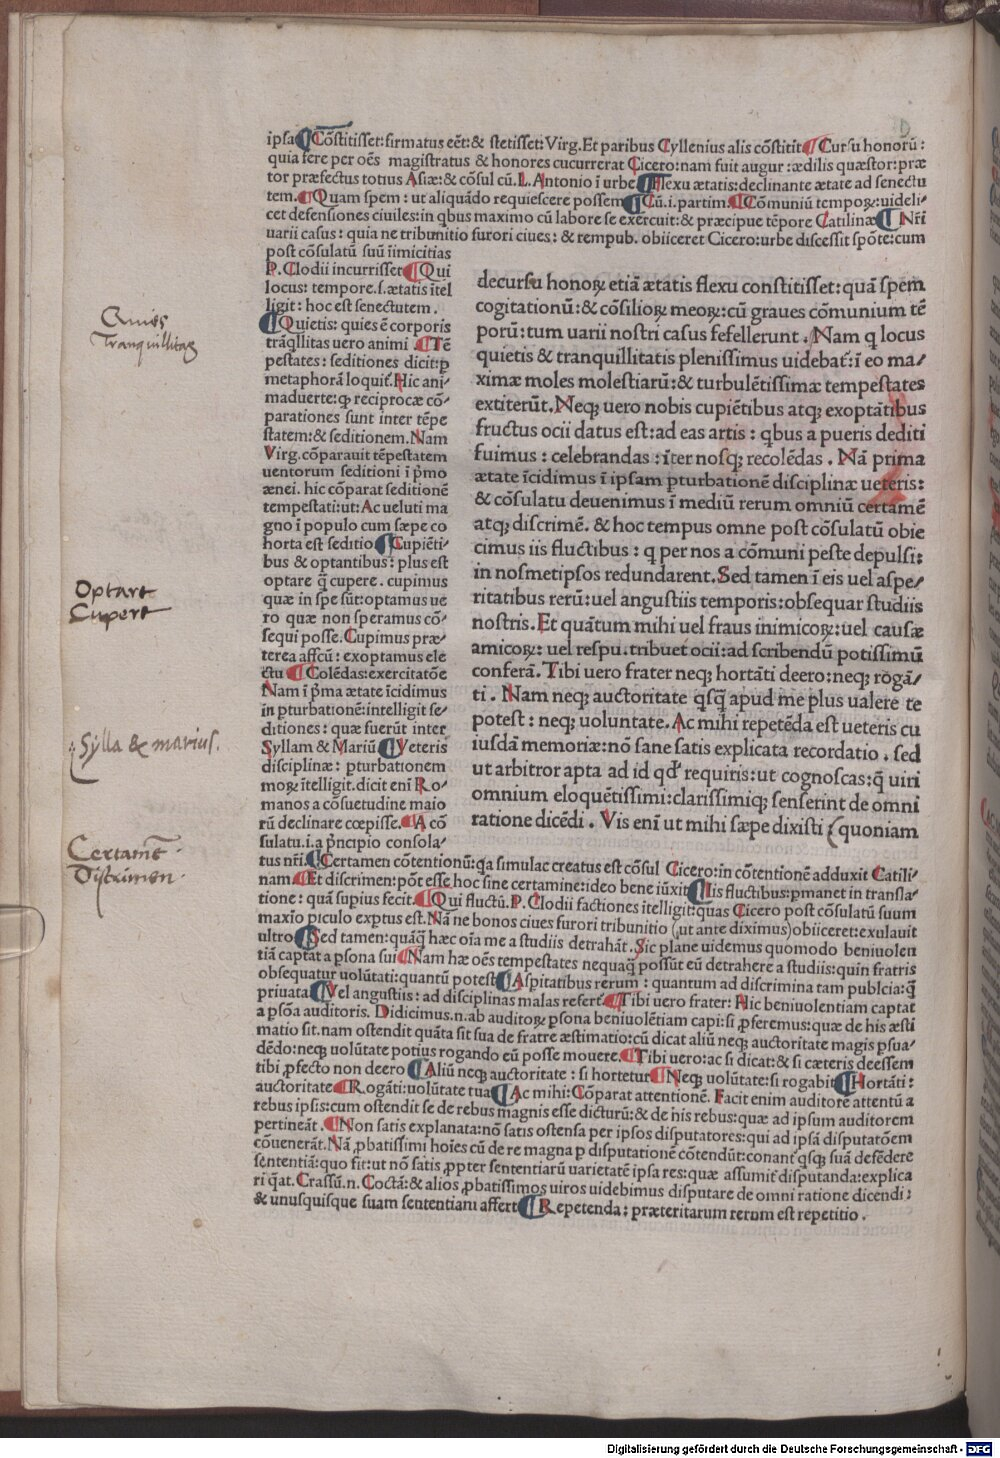 ipsa ¶ Cōstitisset: firmatus eēt: & stetisset: Virg. Et paribus Cyllenius alis cōstitit ¶ Cursu honorū:
quia fere per oēs magistratus & honores cucurrerat Cicero: nam fuit augur: ædilis quæstor: præ
tor præfectus totius Asiæ: & cōsul cū. L. Antonio ī urbe ¶ Flexu ætatis: declinante ætate ad senectu
tem. ¶ Quam spem: ut aliquādo requiescere possem ¶ Cū. i. partim. ¶ Cōmuniū tempoꝝ: uideli-
cet defensiones ciuiles: in qbus maximo cū labore se exercuit: & præcipue tēpore Catilinæ ¶ Nr̄i
uarii casus: quia ne tribunitio furori ciues: & rempub. obiiceret Cicero: urbe discessit spōte: cum
post cōsulatū suū īimicitias
P. Clodii incurrisset ¶ Qui
locus: tempore. s. ætatis ītel
ligit: hoc est senectutem.
¶ Quietis: quies ē corporis
trāqllitas uero animi ¶ Tē
pestates: seditiones dicit: ꝑ
metaphorā loquit̄. Hic ani-
maduerte: ꝙ reciprocæ cō-
parationes sunt inter tēpe
statem: & seditionem. Nam
Virg. cōparauit tēpestatem
uentorum seditioni ī pͥmo
ænei. hic cōparat seditionē
tempestati: ut: Ac ueluti ma
gno ī populo cum sæpe co
horta est seditio ¶ Cupiēti-
bus & optantibus: plus est
optare q̄ cupere. cupimus
quæ in spe sūt: optamus ue
ro quæ non speramus cō-
sequi posse. Cupimus præ-
terea affcū: exoptamus ele
ctu ¶ Colēdas: exercitatōe
Nam ī pͥma ætate īcidimus
in ꝑturbationē: intelligit se-
ditiones: quæ fuerūt inter
Syllam & Mariū ¶ Veteris
disciplinæ: ꝑturbationem
moꝝ ītelligit. dicit enī Ro-
manos a cōsuetudine maio
rū declinare cœpisse. ¶ A cō
sulatu. i. a pͥncipio consola-
tus nr̄i. ¶ Certamen cōtentionū: qa simulac creatus est cōsul Cicero: in cōtentionē adduxit Catili-
nam ¶ Et discrimen: pōt esse hoc sine certamine: ideo bene iūxit ¶ Iis fluctibus: ꝑmanet in transla-
tione: quā supius fecit. ¶ Qui fluctū. P. Clodii factiones ītelligit: quas Cicero post cōsulatū suum
maxīo piculo exptus est. Nā ne bonos ciues furori tribunitio (ut ante diximus) obiiceret: exulauit
ultro ¶ Sed tamen: quāq̄ hæc oīa me a studiis detrahāt. Sic plane uidemus quomodo beniuolen
tiā captat a ꝑsona sui ¶ Nam hæ oēs tempestates nequaq̄ possūt eū detrahere a studiis: quin fratris
obsequatur uolūtati: quantū potest ¶ Aspitatibus rerum: quantum ad discrimina tam publcia: q̄
priuata ¶ Vel angustiis: ad disciplinas malas refert ¶ Tibi uero frater: Hic beniuolentiam captat
a ꝑsōa auditoris. Didicimus. n. ab auditoꝝ ꝑsona beniuolētiam capi: si ꝓferemus: quæ de his æsti
matio sit. nam ostendit quāta sit sua de fratre æstimatio: cū dicat aliū neqꝫ auctoritate magis ꝑsua-
dēdo: neqꝫ uolūtate potius rogando eū posse mouere. ¶ Tibi uero: ac si dicat: & si cæteris deessem
tibi ꝓfecto non deero ¶ Aliū neqꝫ auctoritate: si hortetur ¶ Neqꝫ uolūtate: si rogabit ¶ Hortāti:
auctoritate ¶ Rogāti: uolūtate tua ¶ Ac mihi: Cōparat attentionē. Facit enim auditorē attentū a
rebus ipsis: cum ostendit se de rebus magnis esse dicturū: & de his rebus: quæ ad ipsum auditorem
pertineāt. ¶ Non satis explanata: nō satis ostensa per ipsos disputatores: qui ad ipsā disputatōem
cōuenerāt. Nā ꝓbatissimi hoīes cū de re magna ꝑ disputationē cōtendūt: conant̄ qsqꝫ suā defēdere
sententiā: quo fit: ut nō satis ꝓpter sententiarū uarietatē ipsa res: quæ assumit̄ disputanda: explica
ri q̄at. Crassū. n. Coctā: & alios ꝓbatissimos uiros uidebimus disputare de omni ratione dicendi:
& unusquisque suam sententiam affert ¶ Repetenda: præteritarum rerum est repetitio.
decursu honoꝝ etiā ætatis flexu constitisset: quā spem
cogitationū: & cōsilioꝝ meoꝝ: cū graues cōmunium tē
porū: tum uarii nostri casus fefellerunt. Nam q locus
quietis & tranquillitatis plenissimus uidebat̄: ī eo ma-
ximæ moles molestiarū: & turbulētissimæ tempestates
extiterūt. Neqꝫ uero nobis cupiētibus atqꝫ exoptātibus
fructus ocii datus est: ad eas artis: qbus a pueris dediti
fuimus: celebrandas: īter nosqꝫ recolēdas. Nā prima
ætate īcidimus ī ipsam ꝑturbationē disciplinæ ueteris:
& cōsulatu deuenimus ī mediū rerum omniū certamē
atqꝫ discrimē. & hoc tempus omne post cōsulatū obie
cimus iis fluctibus: q per nos a cōmuni peste depulsi:
in nosmetipsos redundarent. Sed tamen ī eis uel aspe-
ritatibus rerū: uel angustiis temporis: obsequar studiis
nostris. Et quātum mihi uel fraus inimicoꝝ: uel causæ
amicoꝝ: uel respu. tribuet ocii: ad scribendū potissimū
conferā. Tibi uero frater neqꝫ hortāti deero: neqꝫ rogā-
ti. Nam neqꝫ auctoritate qsq̄ apud me plus ualere te
potest: neqꝫ uoluntate. Ac mihi repetēda est ueteris cu
iusdā memoriæ: nō sane satis explicata recordatio. sed
ut arbitror apta ad id qđ requiris: ut cognoscas: q̄ uiri
omnium eloquētissimi: clarissimiqꝫ senserint de omni
ratione dicēdi. Vis enī ut mihi sæpe dixisti (quoniam
Quies
Tranquillitas
Optare
Cupere
Sylla & marius.
Certamē
Discrimen.
Digitalisierung gefördert durch die Deutsche Forschungsgemeinschaft - DFG